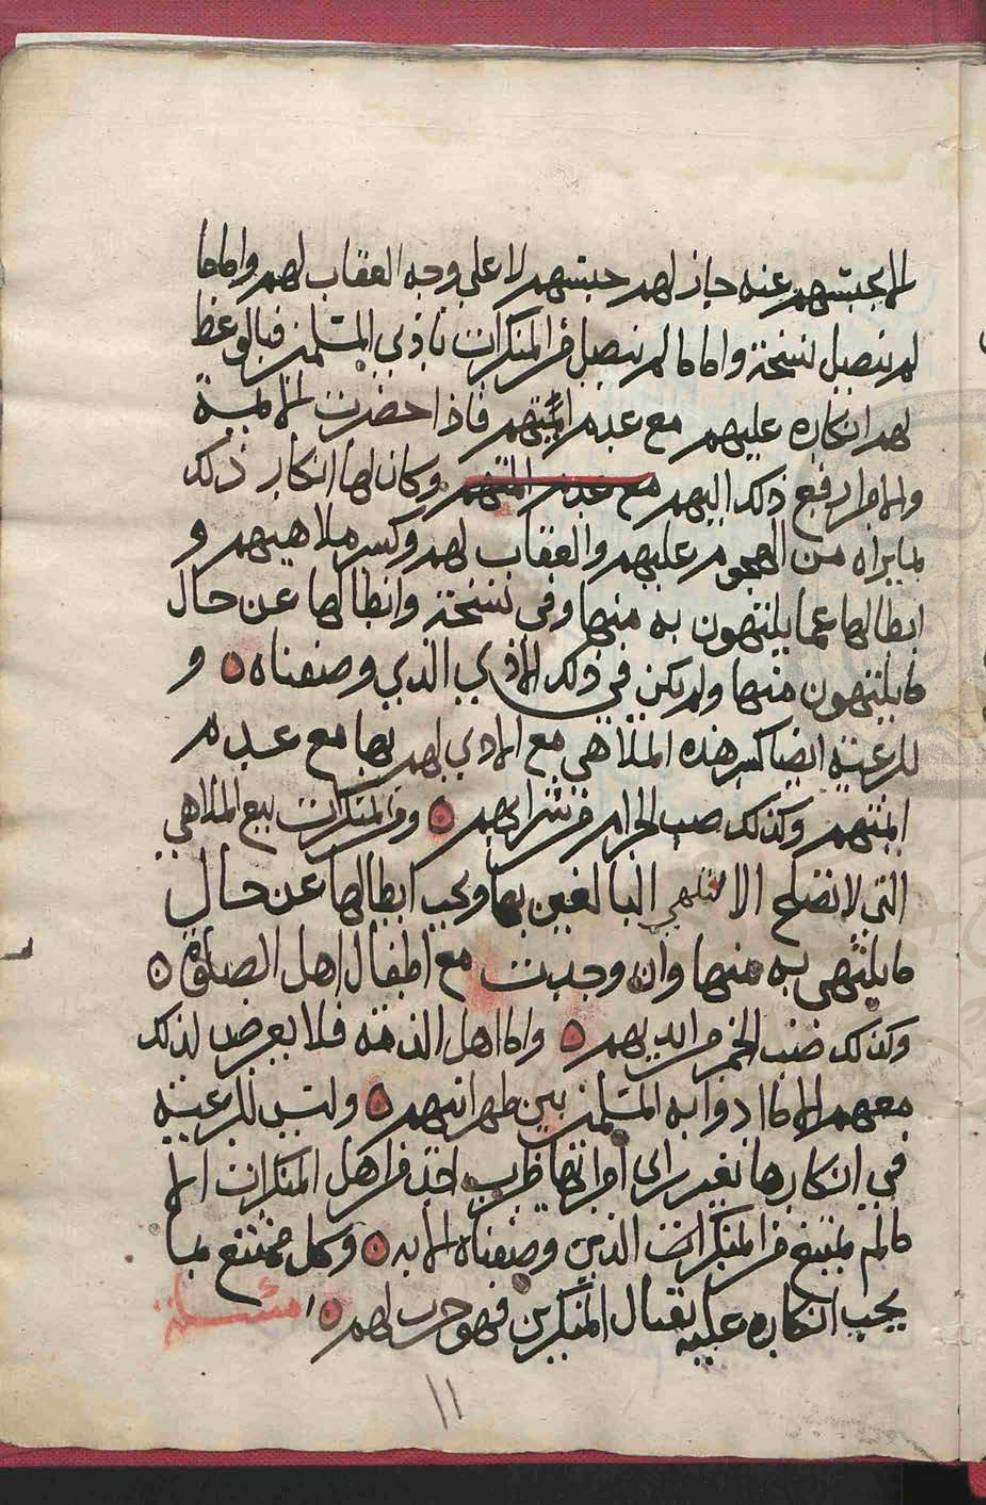 الا بحبسهم عنه جاز لهم حبسهم لا على وجه العقاب لهم واما ما
لم يتصل نسخة واما ما لم يتصل من المنكرات باذى المسلمين فبالوعظ
لهم انكاره عليهم مع عدم ايمتهم فاذا حضرت الايمة
والا فرا رفع ذلك اليهم مع عدم ايمتهم وكان لها انكار ذلك
بما يراه من الهجوم عليهم والعقاب لهم وكسر ملاهيهم و
ابطالها عما يلتهون به منها وفي نسخة وابطالها عن حال
ما يلتهون منها ولم يكن في ذلك الاذى الذي وصفناه ه و
للرعية ايضا كسر هذه الملاهي مع الاذي لهم بها مع عدم
ايمتهم وكذلك صب الحرام من شرابهم ه ومن المنكرات بيع الملاهي
التي لا تصلح الا لتلهي البالغين بها ويجب ابطالها عن حال
ما يلتهى به منها وان وجدت مع اطفال اهل الصلوة ه
وكذلك صب الخمر من ايديهم ه واما اهل الذمة فلا يعرض لذلك
معهم الا ما اذوا به المسلمين بين ظهرانيهم ه وليس للرعية
في انكارها بغير راى امرائها ضرب احد من اهل المنكرات الا
ما لم يمتنع من المنكرات الذين وصفناه الا به ه وكل ممتنع بما
يجب انكاره عليه بقتال المنكرين فهو حرب لهم ه مسئلة
١١